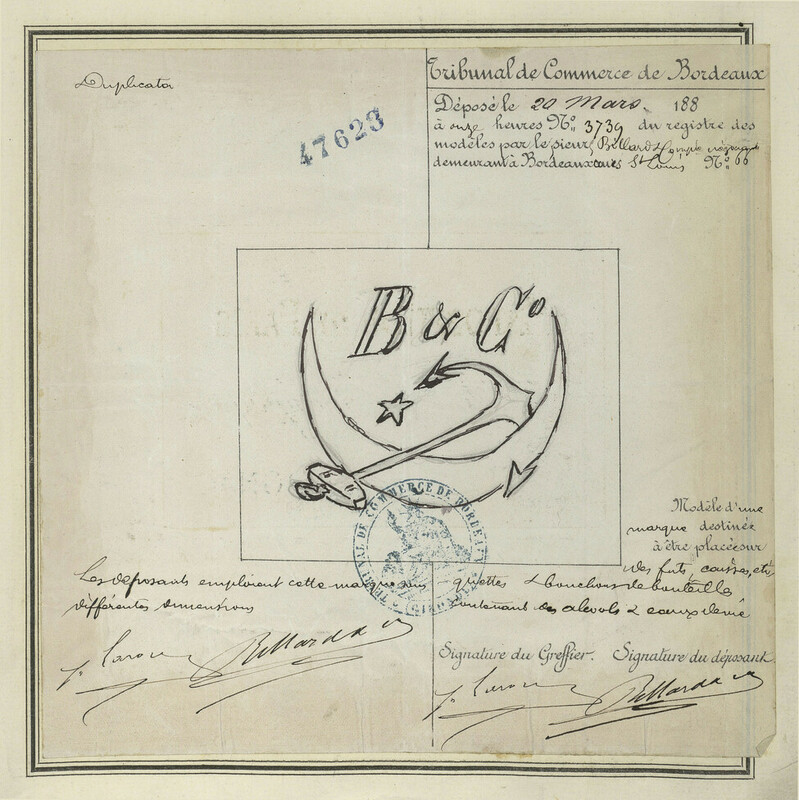 Duplicata
47623
Tribunal de Commerce de Bordeaux
Déposé le 20 Mars 188
à onze heures N° 3739 du registre des
modèles par le sieur Bellard & Comp
demeurant à Bordeaux cours St Louis N° 66
B & Co
TRIBUNAL DE COMMERCE DE BORDEAUX
Modèle d'une
marque destinée
à être placée sur
des futs, caisses, éti-
quettes & bouchons de bouteilles
contenant des alcools & eaux de vie
Les déposants emploient cette marque en
différentes dimensions
Signature du Greffier. Signature du déposant
Bellard & Co
Bellard & Co